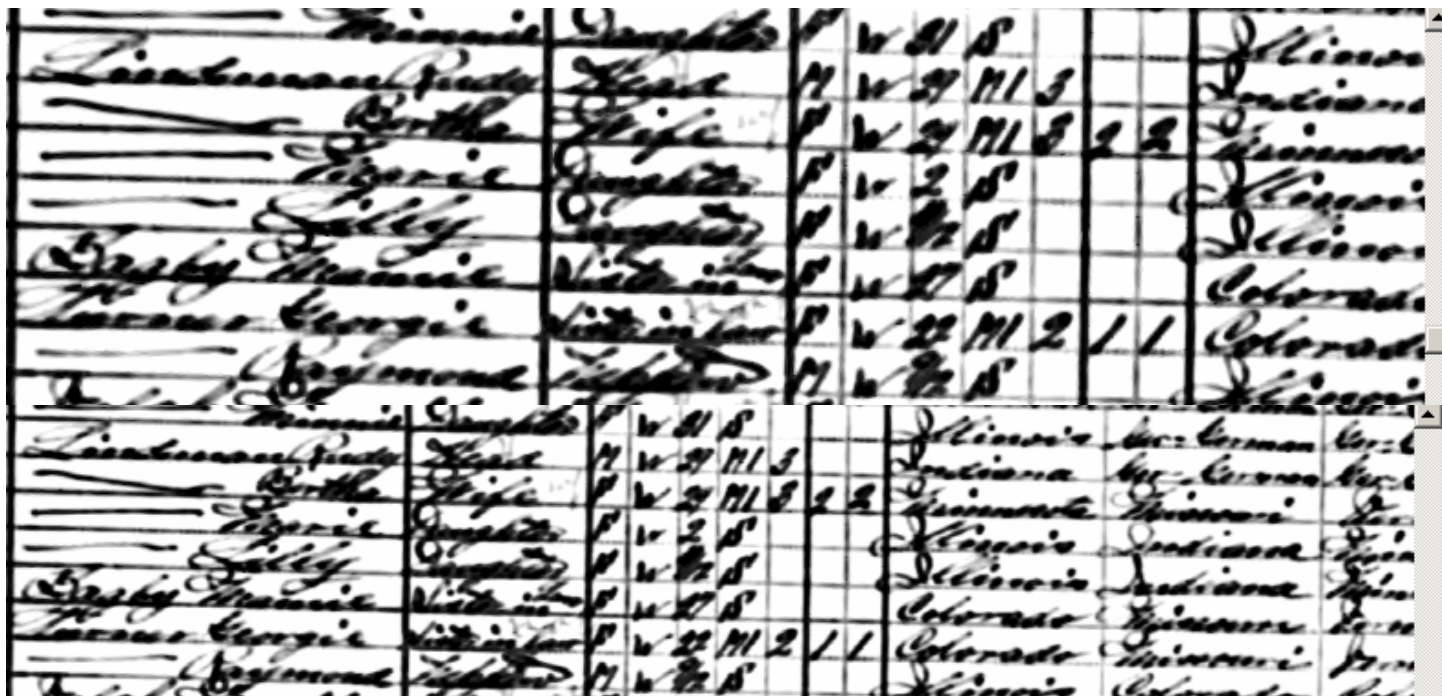 Minnie Daughter F W 21 S Illinois
Lindeman Rudy Head M W 29 M1 3 Indiana
Bertha Wife F W 29 M1 3 2 2 Minnesota
Daughter F W 2 S Illinois
Lilly Daughter F W S Illinois
Bagby Mamie Sister in law F W 27 S Colorado
Turner Georgie Sister in law F W 22 M1 2 1 1 Colorado
Raymond Nephew M W S Illinois
Minnie Daughter F W 21 S Illinois Ger-German Ger-G
Lindeman Rudy Head M W 29 M1 3 Indiana Ger-German Ger-G
Bertha Wife F W 29 M1 3 2 2 Minnesota Missouri
Daughter F W 2 S Illinois Indiana Minn
Lilly Daughter F W S Illinois Indiana Minn
Bagby Mamie Sister in law F W 27 S Colorado Missouri
Turner Georgie Sister in law F W 22 M1 2 1 1 Colorado Missouri
Raymond Nephew M W S Illinois